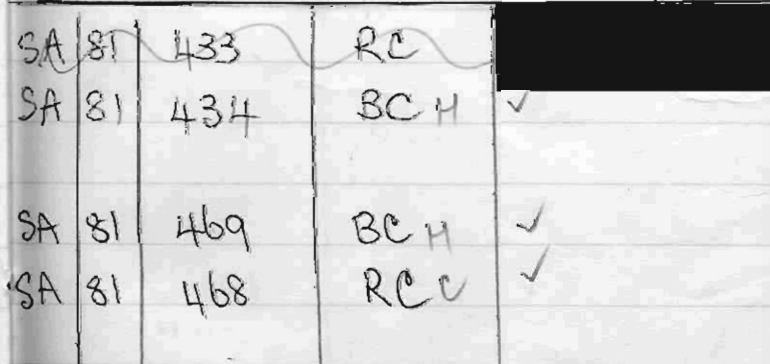 SA 81 433 RC
SA 81 434 BC H ✓
SA 81 469 BC H ✓
SA 81 468 RC C ✓